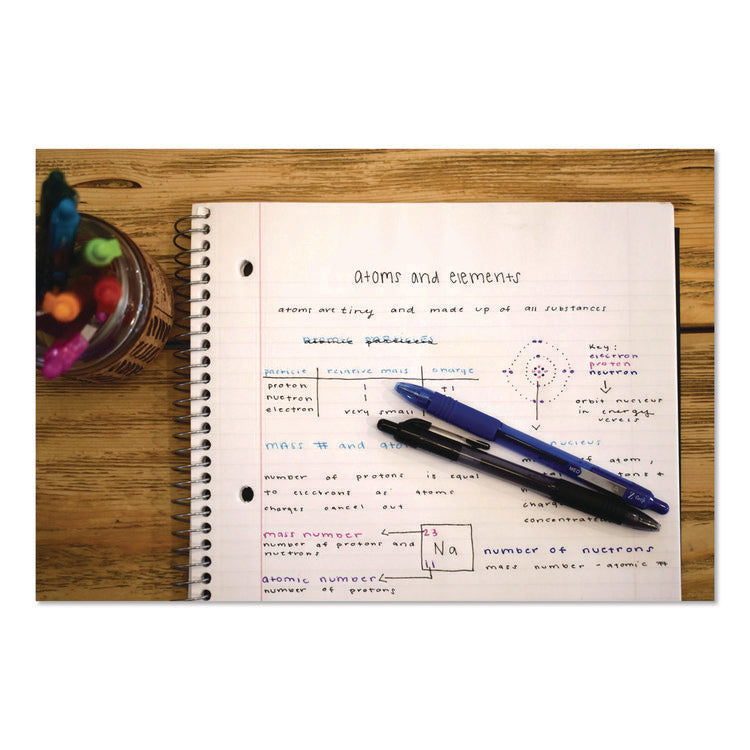 atoms and elements
atoms are tiny and made up of all substances
atomic particles
particle relative mass charge
proton 1 +1
nuetron 1
electron very small
Key:
electron
proton
neutron
orbit nucleus
in energy
mass # and
nucleus
of atom,
number of protons is equal
to electrons as atoms
charges cancel out
concentrated
MED
mass number
number of protons and
nuetrons
23
Na
11
atomic number
number of protons
number of nuetrons
mass number - atomic #